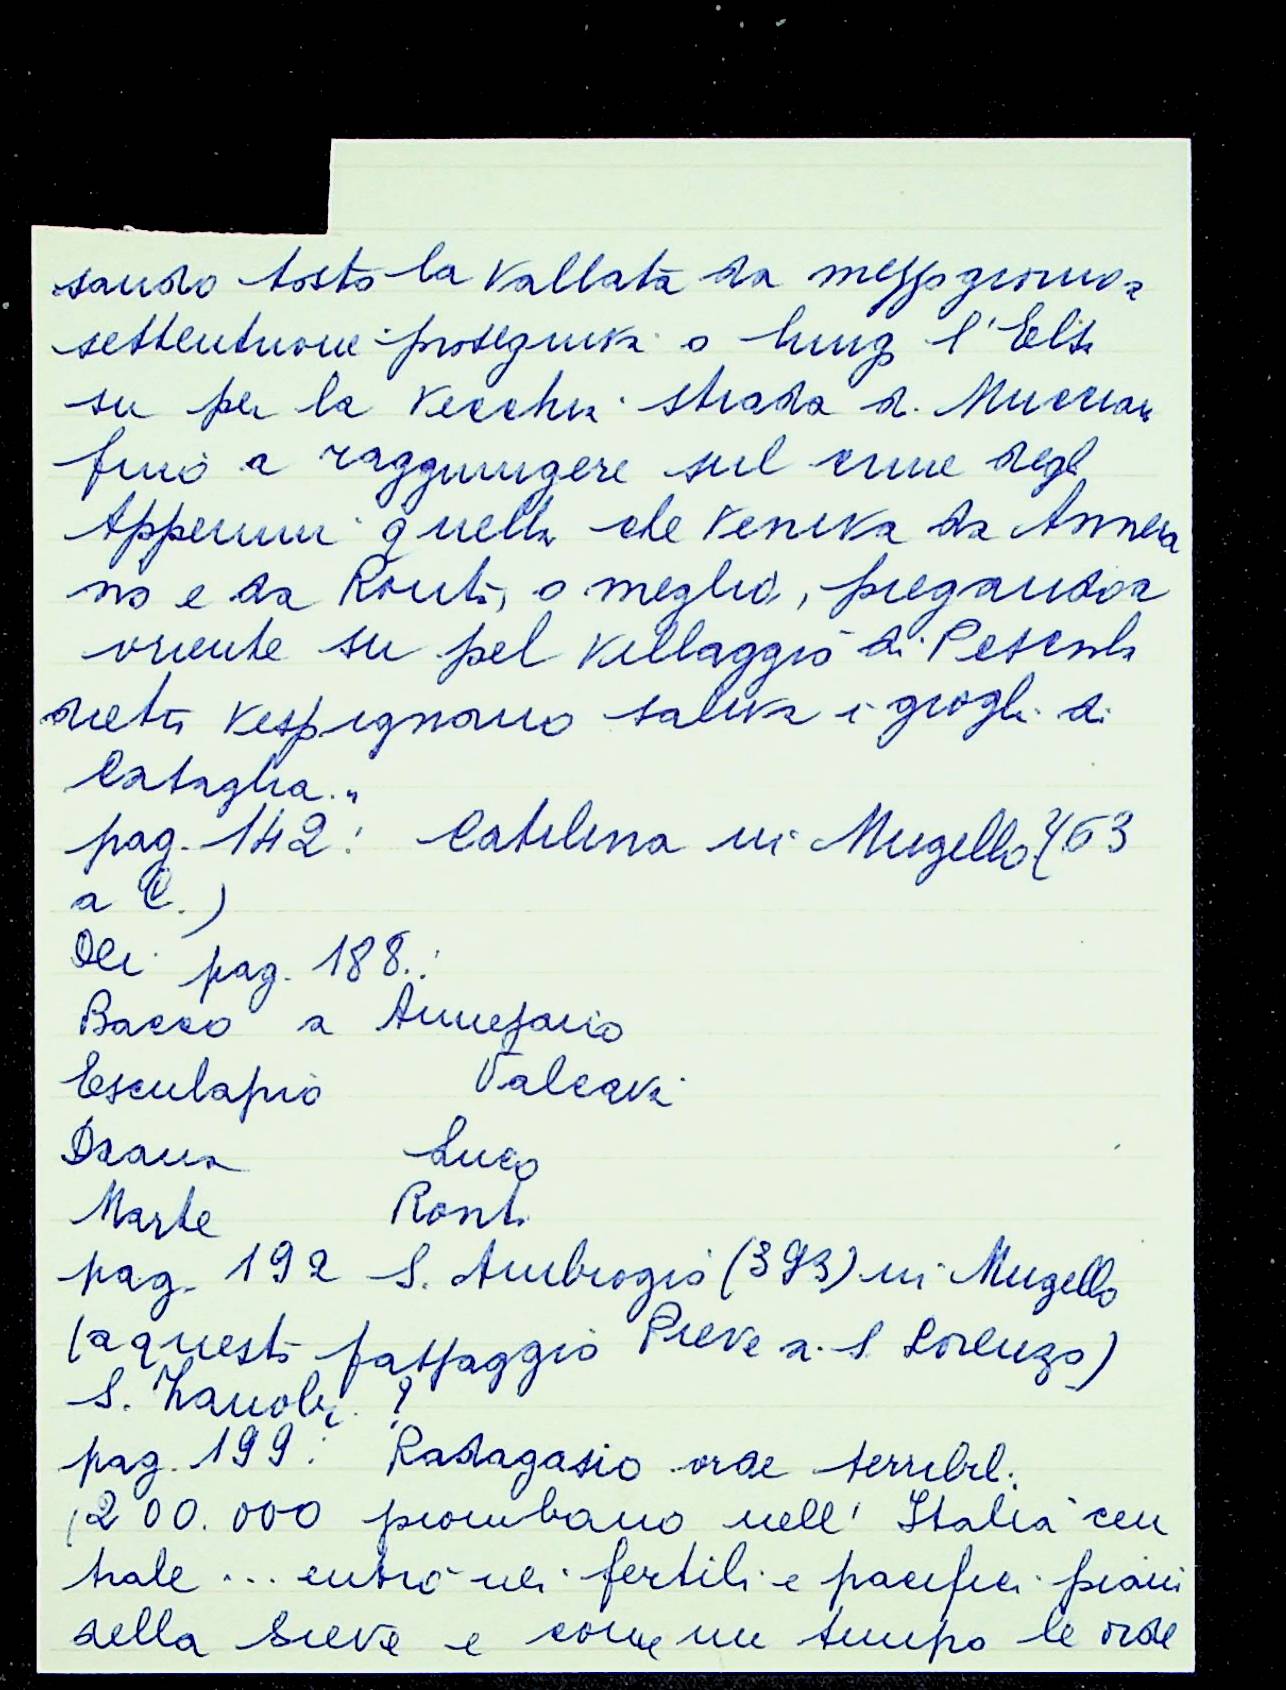 sando tosto la vallata da mezzogiorno a
settentrione proseguiva o lungo l'Elsa
su per la vecchia strada di Mucciano
fino a raggiungere sul crine degli
Appennini quella che veniva da Anneia
no e da Ronta, o meglio, piegando a
oriente su pel villaggio di Pesciola
dietro Vespignano saliva i gioghi di
Casaglia."
pag. 142: Catilina in Mugello? (63
a C.)
Dei pag. 188.:
Bacco a Annejanio
Esculapio Valcava
Diana Luco
Marte Ronta
pag. 192 S. Ambrogio (393) in Mugello
(a questo passaggio Pieve a S. Lorenzo)
S. Zanobi. ?
pag. 199: Radagasio orde terribili
(200.000 piombano nell' Italia cen
trale ... entrò nei fertili e pacifici piani
della Sieve e come un tempo le orde